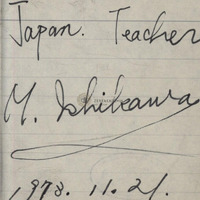 Japan. Teacher
M. Ishikawa
1978. 11. 21.